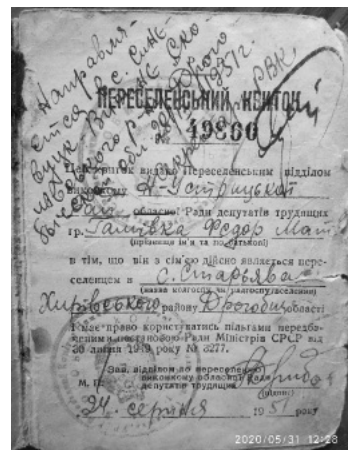 Направля-
ется в с. Синe-
Вицк Виж
Дрого
обл 29/VIII 51 г.
РВК
ПЕРЕСЕЛЕНСЬКИЙ КВИТОК
49800
Цей квиток видано Переселенським відділом
виконкому Н-Устрицької
обласної Ради депутатів трудящих
гр. Галівка Федор Мат
(прізвище ім'я та по батькові)
в тім, що він з сім'єю дійсно являється пере-
селенцем в с. Старява
(назва колгоспу чи радгоспу, поселення)
Хирівського району Дрогобиц області
і має право користатись пільгами передба-
ченими постановою Ради Міністрів СРСР від
30 липня 1949 року № 3277.
Зав. відділом по переселенню
виконкому обласної Ради
М. П. депутатів трудящих
(підпис)
24 серпня 1951 року
2020/05/31 12:28